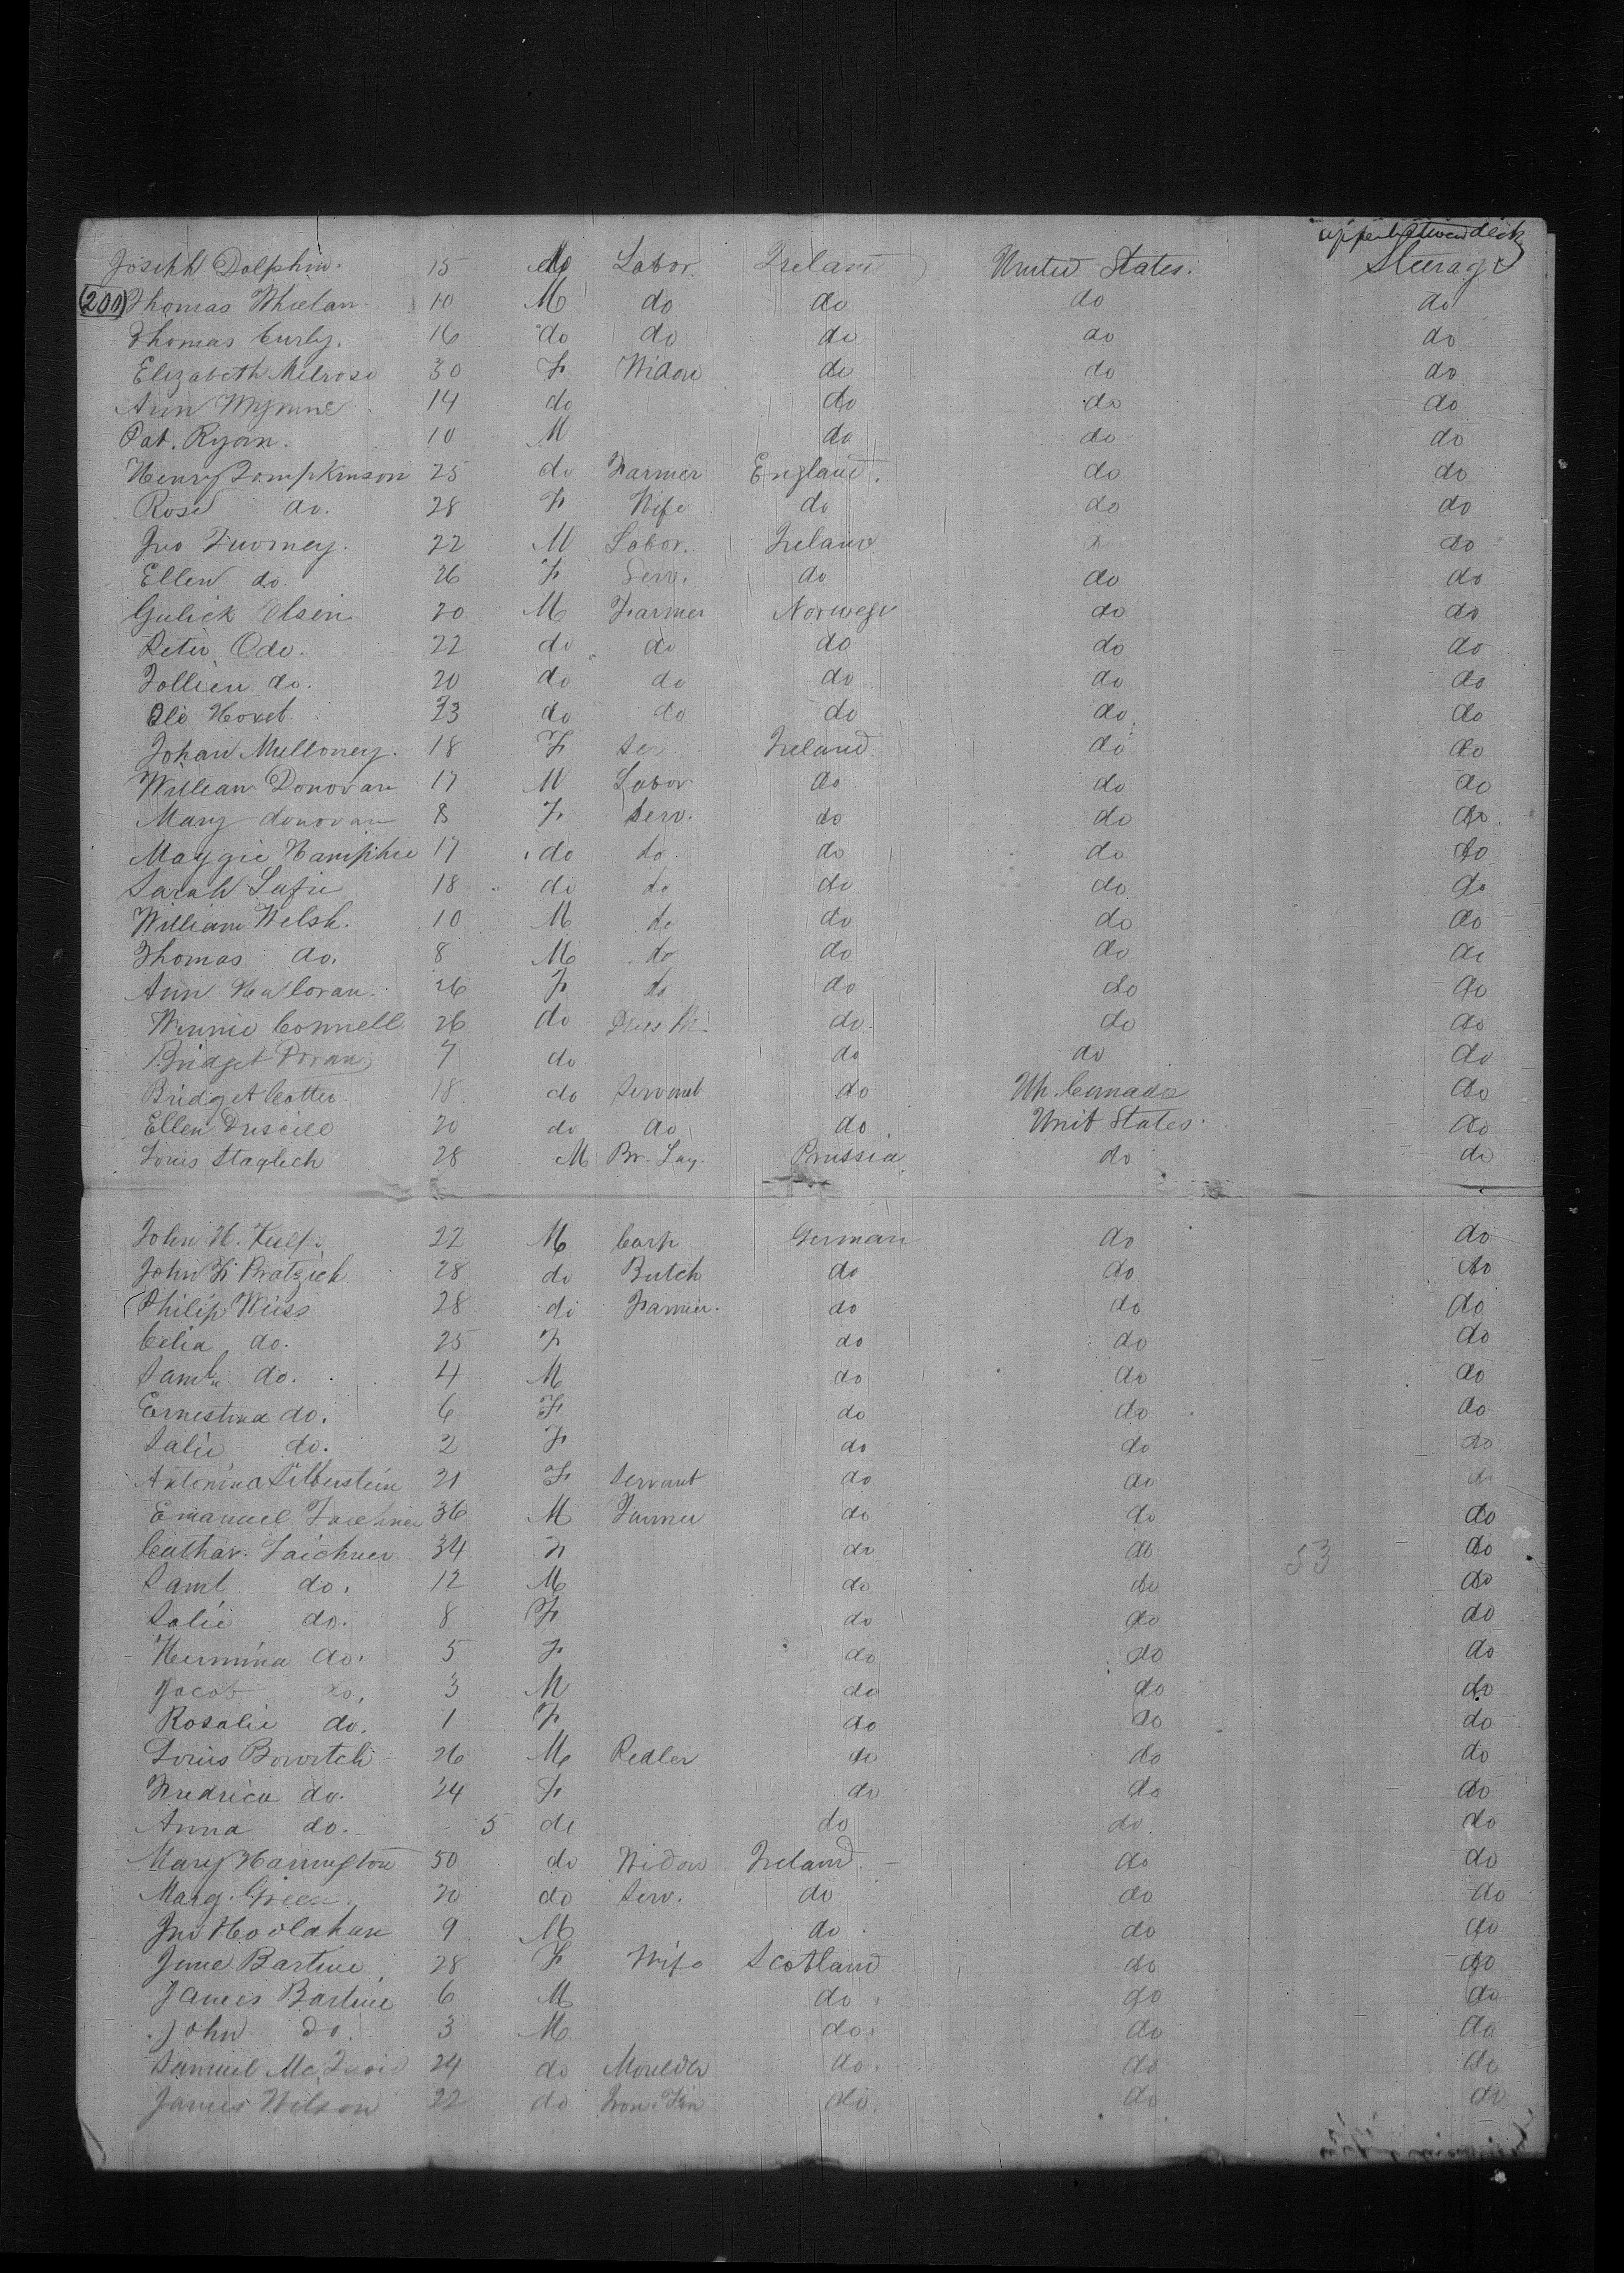 upper between deck
Joseph Dolphin. 15 do Labor. Ireland United States. Steerage
(200) Thomas Whelan 10 M do do do do
Thomas Curly. 16 do do do do do
Elizabeth Melrose 30 F Widow do do do
Ann Wynne 14 do do do do
Pat. Ryan. 10 M do do do
Henry Tompkinson 25 do Farmer England. do do
Rose do. 28 F Wife do do do
Jno Twomey. 22 M Labor. Ireland do do
Ellen do. 26 F Serv. do do do
Gulick Olsen 20 M Farmer Norwege do do
Peter Ode. 22 do do do do do
Tollien do. 20 do do do do do
Ole Hovet 23 do do do do do
Johan Mulloney. 18 F Ser Ireland. do do
William Donovan 17 M Labor do do do
Mary donovan 8 F Serv. do do do
Maggie Hamphie 17 do do do do do
Sarah 18 do do do do do
William Welsh. 10 M do do do do
Thomas do. 8 M do do do do
Ann Halloran. 26 F do do do do
Winnie Connell 26 do do. do do
Bridget Doran 7 do do do do
Bridget Cotter 18. do Servant do Up. Cannada do
Ellen Driscill 20 do do do Unit States. do
Louis Staglich 28 M Br. Lay. Prussia do do
John H. 22 M Carp German do do
John F. Pratzich 28 do Butch do do do
(Philip Weiss 28 do Farmer. do do do
Celia do. 25 F do do do
Saml. do. 4 M do do do
Ernestina do. 6 F do do do
Salie do. 2 F do do do
Antonina Silberstein 21 F Servant do do do
Emanuel 36 M Farmer do do do
Cathar. Faichner 34 F do do 53 do
Saml do. 12 M do do do
Salie do. 8 F do do do
Hermina do. 5 F do do do
Jacob do. 3 M do do do
Rosalie do. 1 F do do do
Louis Bowitch 26 M Pedler do do do
Fredrica do. 24 F do do do
Anna do. 5 do do do. do
Mary Harrington 50 do Widow Ireland. do do
Marg. Green 20 do Serv. do do do
Jno Hoolahan 9 M do do do
Jane Bartine 28 F Wife Scotland do do
James Bartine 6 M do do do
John do. 3 M do. do do
Samuel 24 do Moulder do. do do
James Wilson 22 do do. do do